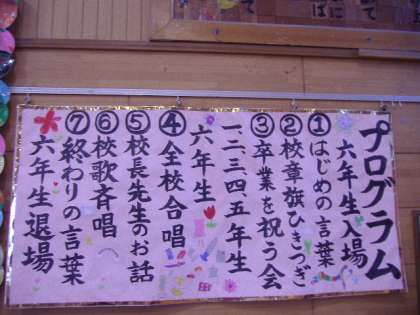 プログラム
六年生入場
①はじめの言葉
②校章旗ひきつぎ
③卒業を祝う会
一二三四五年生
六年生
④全校合唱
⑤校長先生のお話
⑥校歌斉唱
⑦終わりの言葉
六年生退場